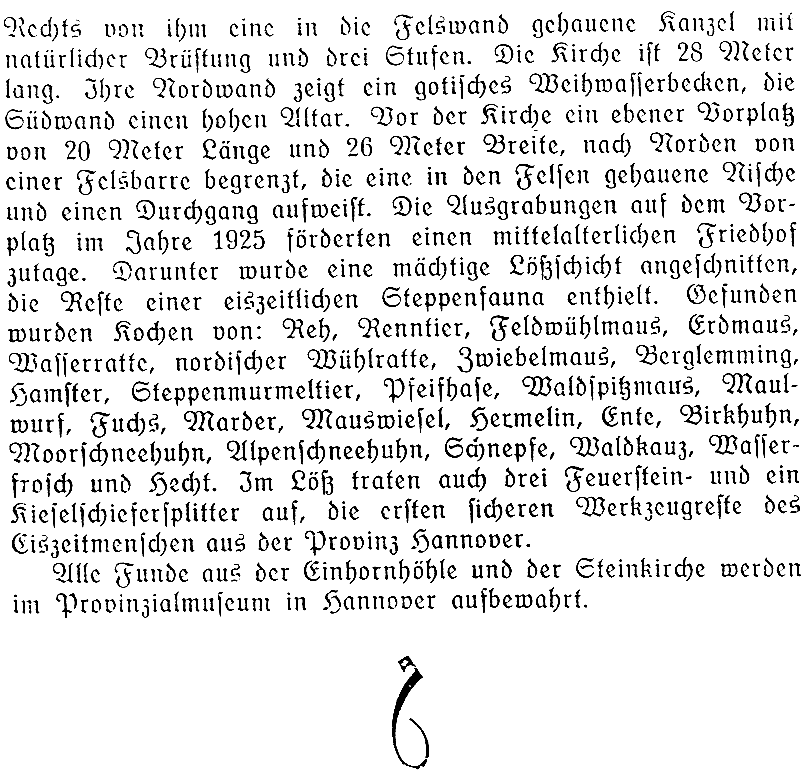 Rechts von ihm eine in die Felswand gehauene Kanzel mit
natürlicher Brüstung und drei Stufen. Die Kirche ist 28 Meter
lang. Ihre Nordwand zeigt ein gotisches Weihwasserbecken, die
Südwand einen hohen Altar. Vor der Kirche ein ebener Vorplatz
von 20 Meter Länge und 26 Meter Breite, nach Norden von
einer Felsbarre begrenzt, die eine in den Felsen gehauene Nische
und einen Durchgang aufweist. Die Ausgrabungen auf dem Vor-
platz im Jahre 1925 förderten einen mittelalterlichen Friedhof
zutage. Darunter wurde eine mächtige Lößschicht angeschnitten,
die Reste einer eiszeitlichen Steppenfauna enthielt. Gefunden
wurden Kochen von: Reh, Renntier, Feldwühlmaus, Erdmaus,
Wasserratte, nordischer Wühlratte, Zwiebelmaus, Berglemming,
Hamster, Steppenmurmeltier, Pfeifhase, Waldspitzmaus, Maul-
wurf, Fuchs, Marder, Mauswiesel, Hermelin, Ente, Birkhuhn,
Moorschneehuhn, Alpenschneehuhn, Schnepfe, Waldkauz, Wasser-
frosch und Hecht. Im Löß traten auch drei Feuerstein- und ein
Kieselschiefersplitter auf, die ersten sicheren Werkzeugreste des
Eiszeitmenschen aus der Provinz Hannover.
Alle Funde aus der Einhornhöhle und der Steinkirche werden
im Provinzialmuseum in Hannover aufbewahrt.